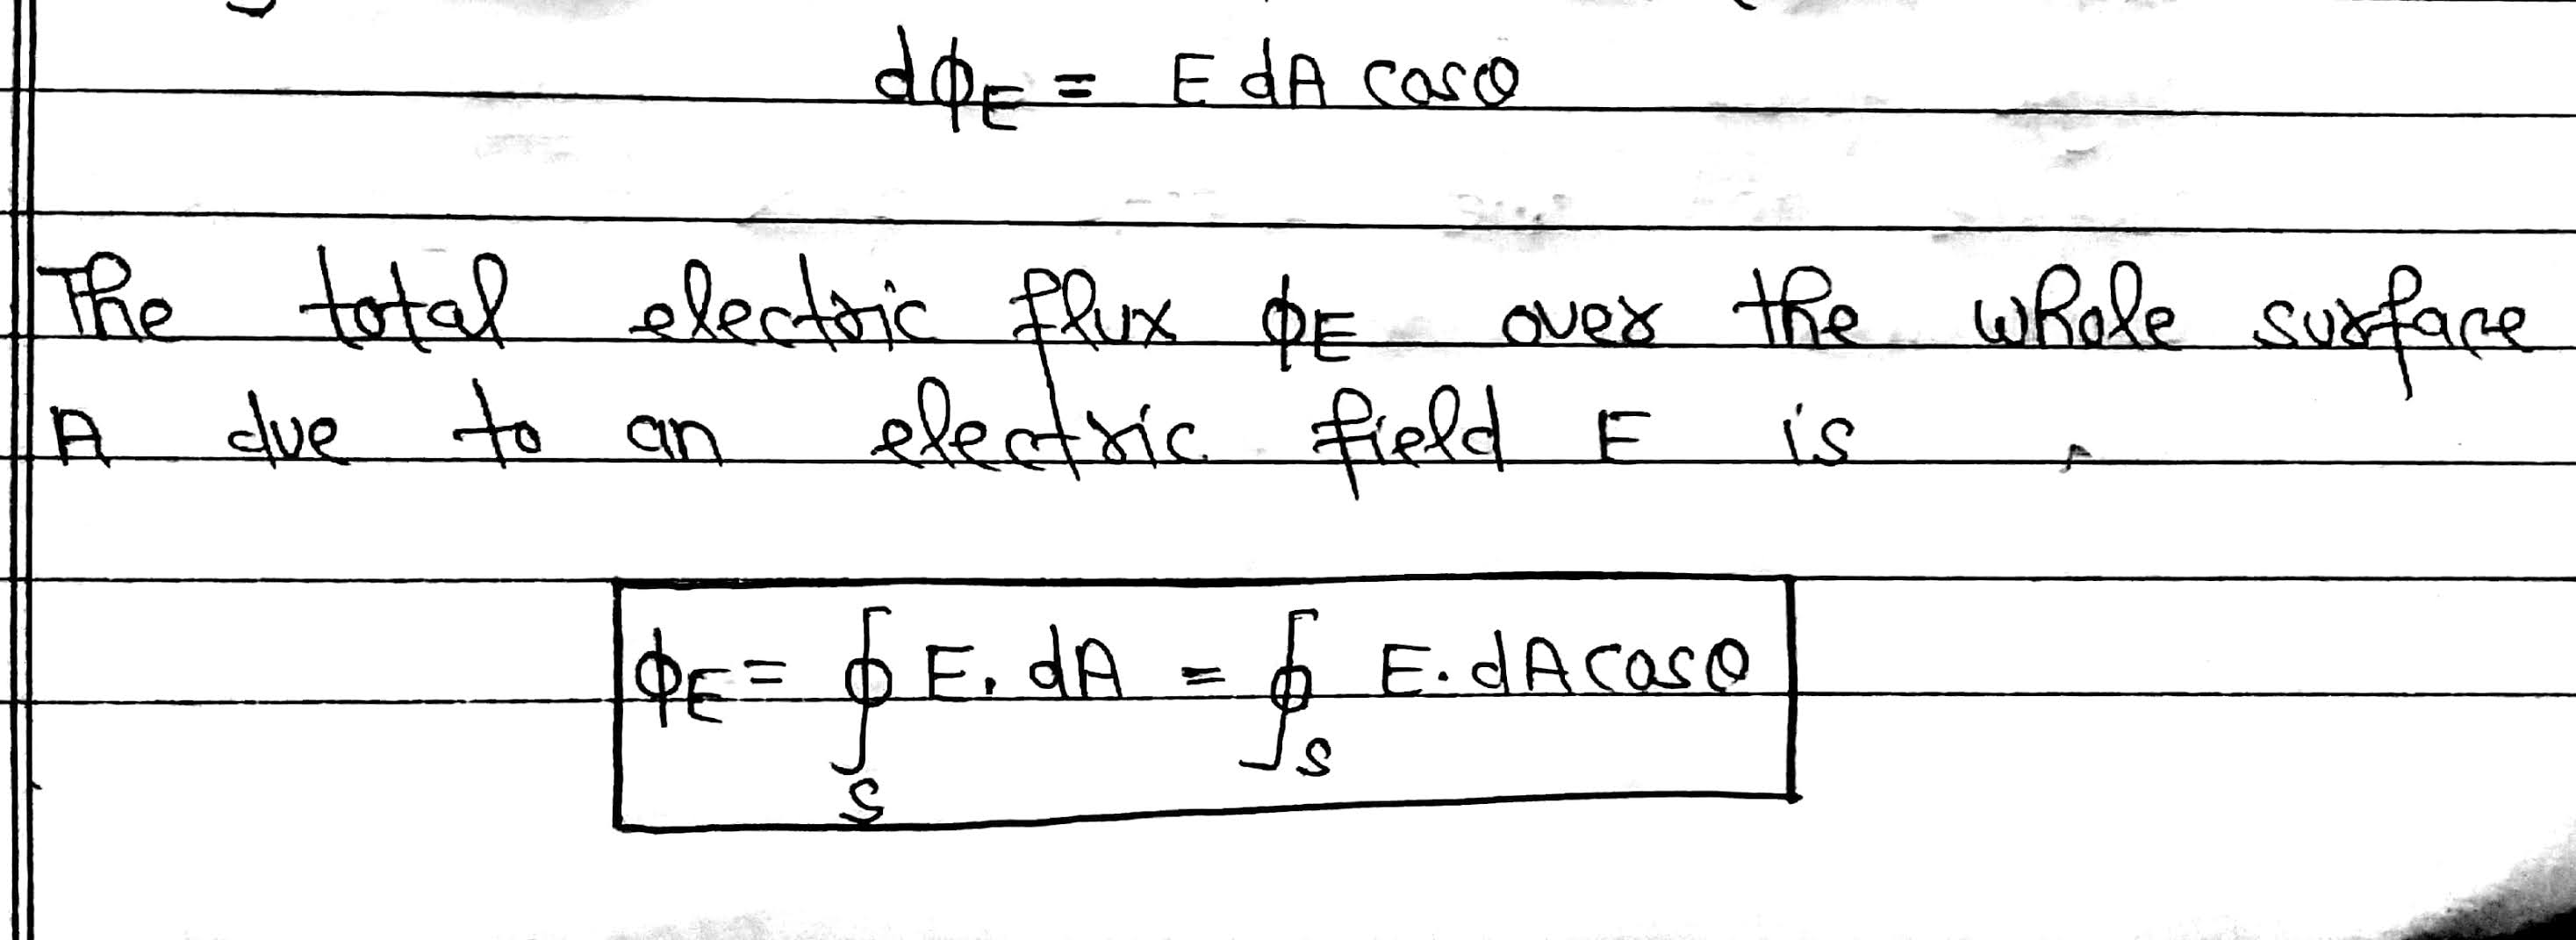 dΦE = E dA cosθ
The total electric flux ΦE over the whole surface
A due to an electric field E is
ΦE = ∮S E. dA = ∮S E. dA cosθ